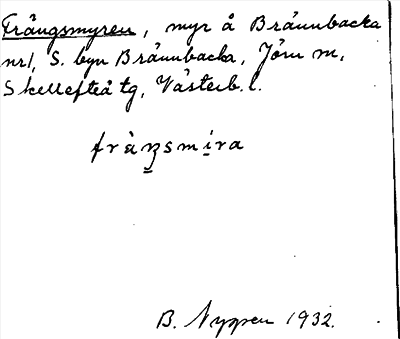 Frängsmyren, myr å Brännbacka
nr 1, S. byn Brännbacka, Jörn m,
Skellefteå tg, Västerb. l.
fràŋsmíra
B. Nygren 1932.